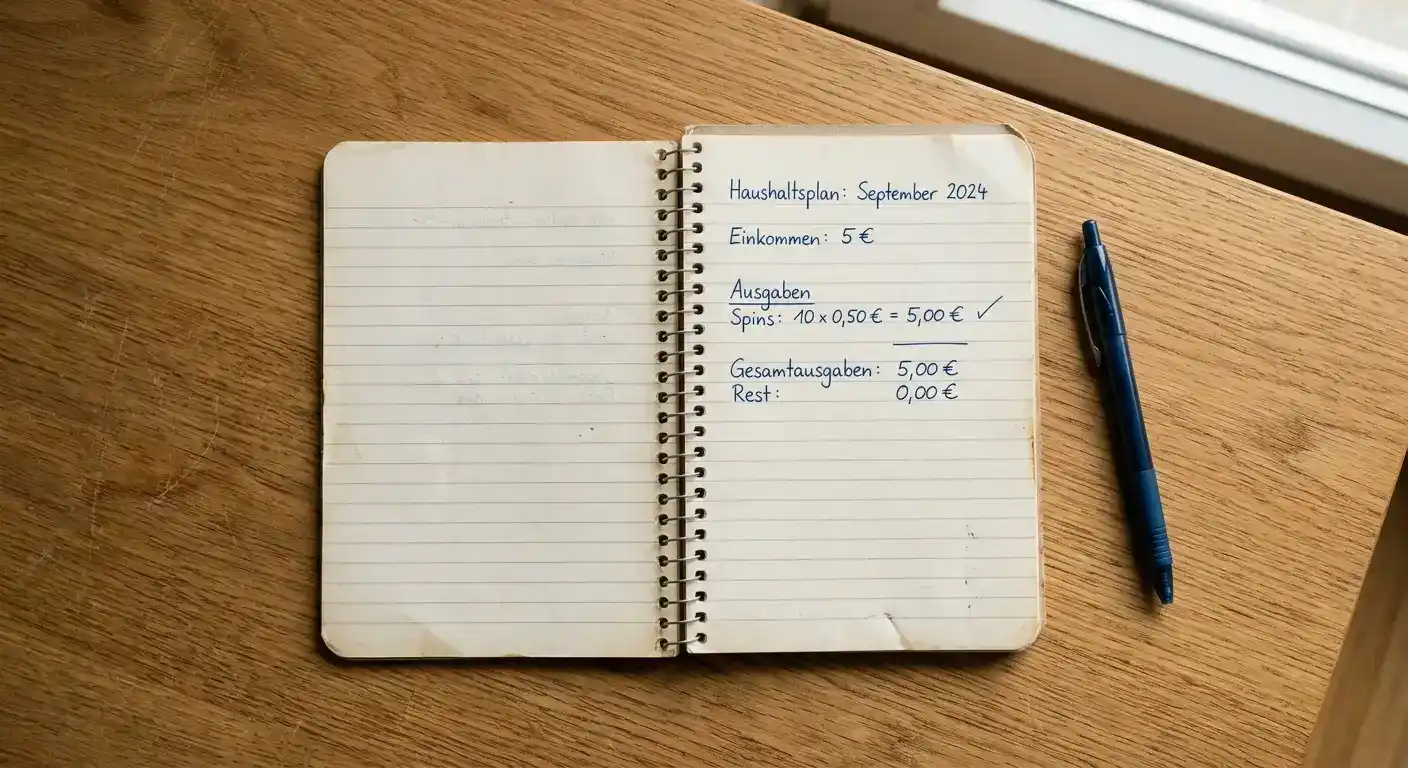 Haushaltsplan: September 2024
Einkommen: 5 €
Ausgaben
Spins: 10 x 0,50 € = 5,00 € ✓
Gesamtausgaben: 5,00 €
Rest: 0,00 €